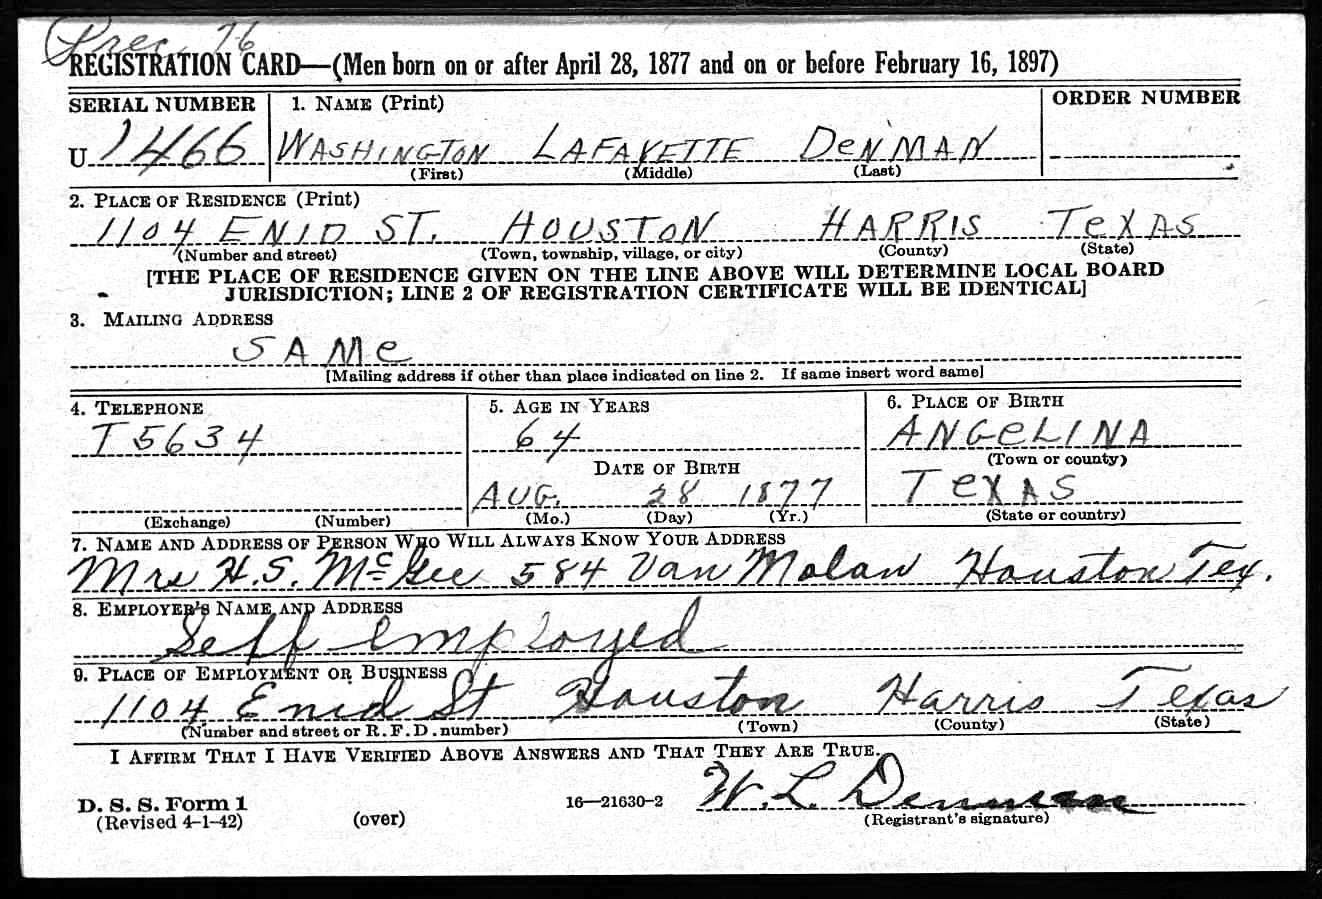 Prec. 76
REGISTRATION CARD—(Men born on or after April 28, 1877 and on or before February 16, 1897)
SERIAL NUMBER 1. NAME (Print) ORDER NUMBER
U 1466 WASHINGTON LAFAYETTE DeNMAN
(First) (Middle) (Last)
2. PLACE OF RESIDENCE (Print)
1104 ENID ST. HOUSTON HARRIS TeXAS
(Number and street) (Town, township, village, or city) (County) (State)
[THE PLACE OF RESIDENCE GIVEN ON THE LINE ABOVE WILL DETERMINE LOCAL BOARD
JURISDICTION; LINE 2 OF REGISTRATION CERTIFICATE WILL BE IDENTICAL]
3. MAILING ADDRESS
SAMe
[Mailing address if other than place indicated on line 2. If same insert word same]
4. TELEPHONE 5. AGE IN YEARS 6. PLACE OF BIRTH
T 5634 64 ANGeLINA
(Town or county)
DATE OF BIRTH
AUG. 28 1877 TeXAS
(Exchange) (Number) (Mo.) (Day) (Yr.) (State or country)
7. NAME AND ADDRESS OF PERSON WHO WILL ALWAYS KNOW YOUR ADDRESS
Mrs H.S. McGee 584 Van Molan Houston Tex.
8. EMPLOYER'S NAME AND ADDRESS
Self employed
9. PLACE OF EMPLOYMENT OR BUSINESS
1104 Enid St Houston Harris Texas
(Number and street or R. F. D. number) (Town) (County) (State)
I AFFIRM THAT I HAVE VERIFIED ABOVE ANSWERS AND THAT THEY ARE TRUE.
W. L. Denman
D. S. S. Form 1 16—21630-2
(Revised 4-1-42) (over) (Registrant's signature)